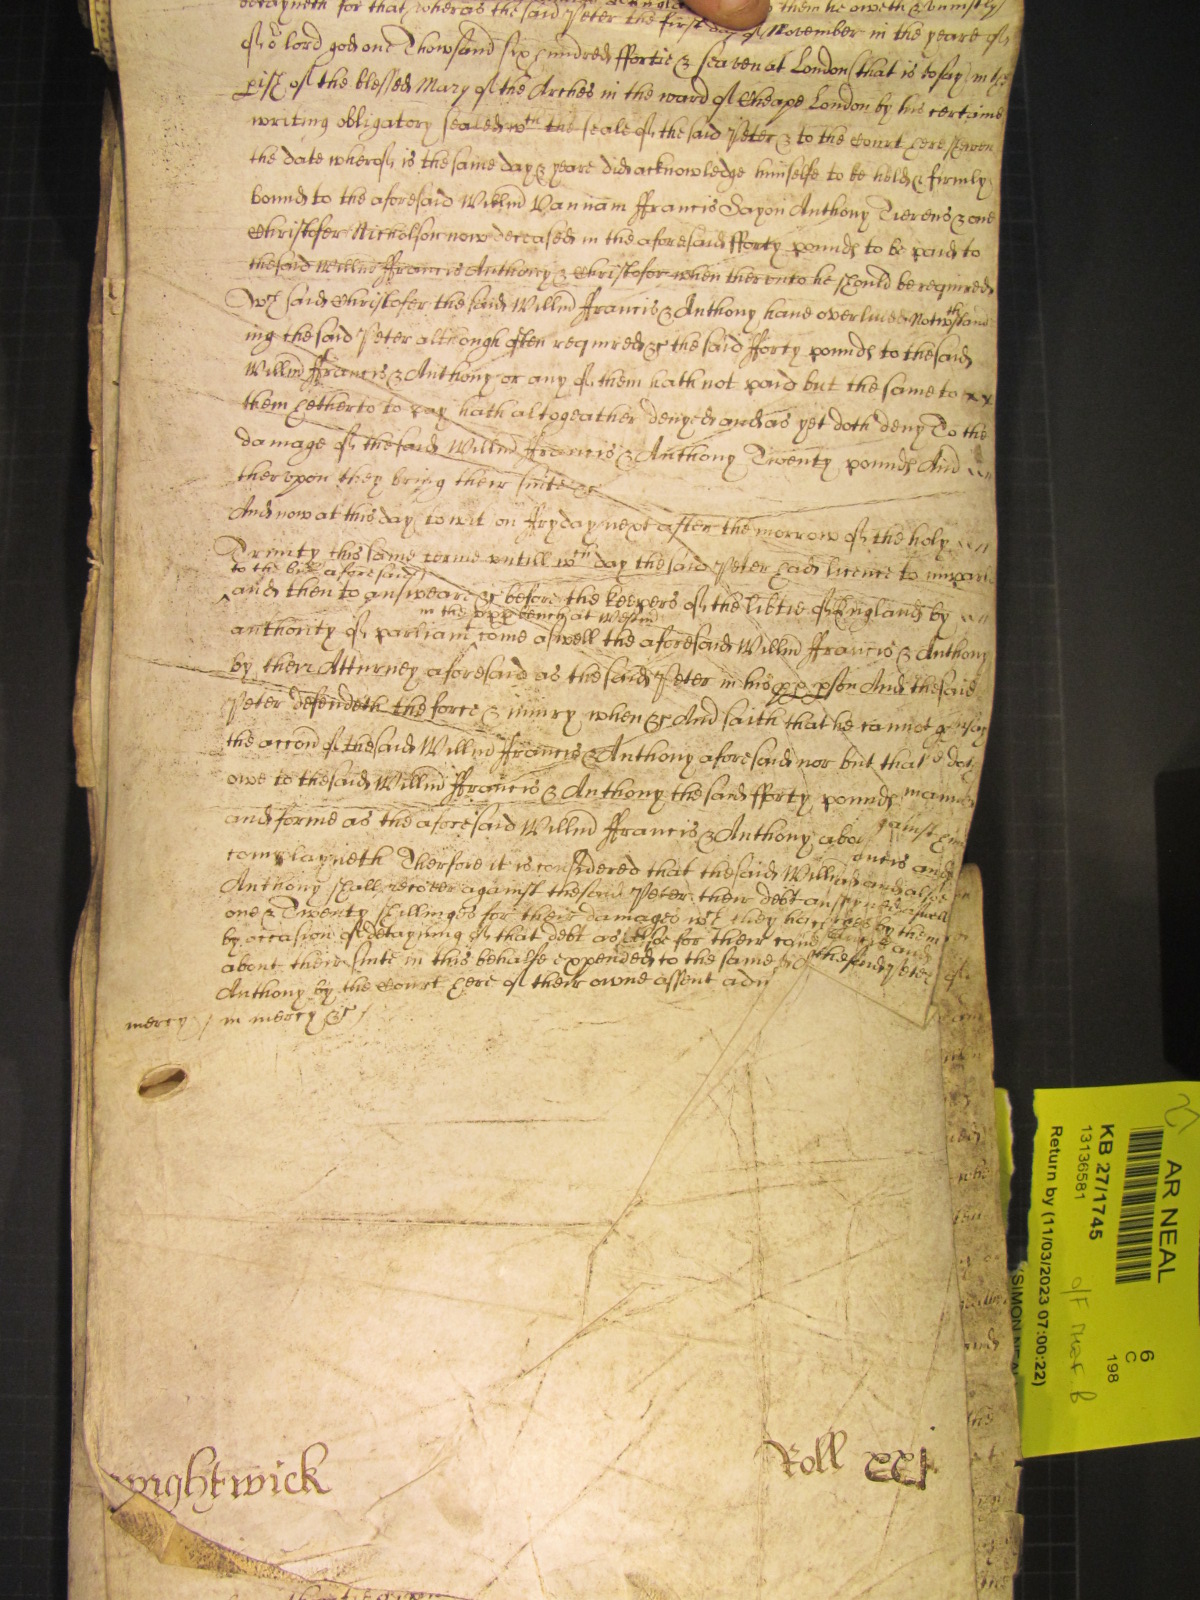 detayneth for that whereas the said Peter the first day of November in the yeare of
of oʳ lord god one Thowsand six hundred ffortie & seaven at London (that is to say) in the
pish of the blessed Mary of the Arches in the ward of Cheape London by his certaine
writing obligatory sealed wᵗʰ the seale of the said Peter & to the Court here shewen
the date wherof is the same day & yeare did acknowledge himselfe to be held & firmly
bound to the aforesaid Willm Vannam ffrancis Sayon Anthony Tierens & one
Christofer Nicholson now deceased in the aforesaid fforty pounds to be paid to
the said Willm ffrancis Anthony & Christofer when therunto he should be required
Wᶜʰ said Christofer the said Willm ffrancis & Anthony have overlived Notwᵗʰstand
ing the said Peter although often required &c the said fforty pounds to the said
Willm ffrancis & Anthony or any of them hath not paid but the same to
them hetherto to pay hath altogeather denyed and as yet doth deny To the
damage of the said Willm ffrancis & Anthony Twenty pounds And
therupon they bring their suite &c
And now at this day to wit on ffryday next after the morrow of the holy
Trinity this same terme untill wᶜʰ day the said Peter had licence to imparle
to the bill aforesaid
and then to answeare &c before the keepers of the libtie of England by
in the upp bench at Westm
authority of parliamᵗ come aswell the aforesaid Willm ffrancis & Anthony
by their Atturney aforesaid as the said Peter in his pp pson And the said
Peter defendeth the force & iniury when &c And saith that he cannot gensay
the accon of the said Willm ffrancis & Anthony aforesaid nor but that doth
owe to the said Willm ffrancis & Anthony the said fforty pounds in manner
and forme as the aforesaid Willm ffrancis & Anthony above against him
complayneth Therfore it is considered that the said Willm ffrancis and
Anthony shall recover against the said Peter their debt and also
one & Twenty shillinges for their damages wᶜʰ they have
by occasion of detayning of that debt as also for their by them
about their suite in this behalfe expended to the same and
Anthony by the Court here of their owne assent the said Peter
mercy / in mercy &c /
Wightwick
Roll xxj
AR NEAL
KB 27/1745
13136581
Return by (11/03/2023 07:00:22)
6
C
198
SIMON NEAL